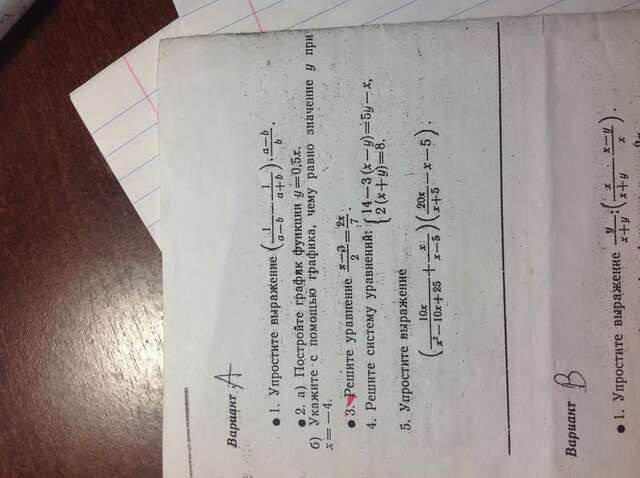 Вариант A
● 1. Упростите выражение (1/(a−b) − 1/(a+b)) · (a−b)/b.
● 2. а) Постройте график функции y=0,5x.
б) Укажите с помощью графика, чему равно значение y при
x=−4.
● 3. Решите уравнение (x−3)/2 = 2x/7.
4. Решите систему уравнений: { 14−3(x−y)=5y−x,
2(x+y)=8.
5. Упростите выражение
(10x/(x²−10x+25) + x/(x−5)) (20x/(x+5) −x−5).
Вариант B
● 1. Упростите выражение y/(x+y) : (x/(x+y) (x−y)/x).